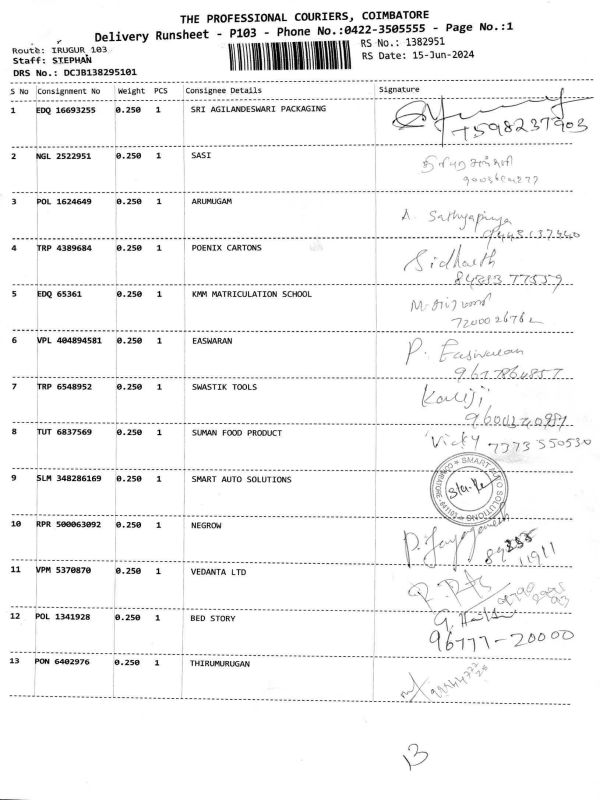 THE PROFESSIONAL COURIERS, COIMBATORE
Delivery Runsheet - P103 - Phone No.:0422-3505555 - Page No.:1
Route: IRUGUR 103
RS No.: 1382951
Staff: STEPHAN
RS Date: 15-Jun-2024
DRS No.: DCJB138295101
S No Consignment No Weight PCS Consignee Details Signature
1 EDQ 16693255 0.250 1 SRI AGILANDESWARI PACKAGING
7598237903
2 NGL 2522951 0.250 1 SASI
3 POL 1624649 0.250 1 ARUMUGAM
A. Sathyapriya
4 TRP 4389684 0.250 1 POENIX CARTONS
Sidharth
5 EDQ 65361 0.250 1 KMM MATRICULATION SCHOOL
6 VPL 404894581 0.250 1 EASWARAN
P. Easwaran
7 TRP 6548952 0.250 1 SWASTIK TOOLS
8 TUT 6837569 0.250 1 SUMAN FOOD PRODUCT
Vicky 7373550530
9 SLM 348286169 0.250 1 SMART AUTO SOLUTIONS
SMART AUTO SOLUTIONS
10 RPR 500063092 0.250 1 NEGROW
11 VPM 5370870 0.250 1 VEDANTA LTD
12 POL 1341928 0.250 1 BED STORY
96777-20000
13 PON 6402976 0.250 1 THIRUMURUGAN
13